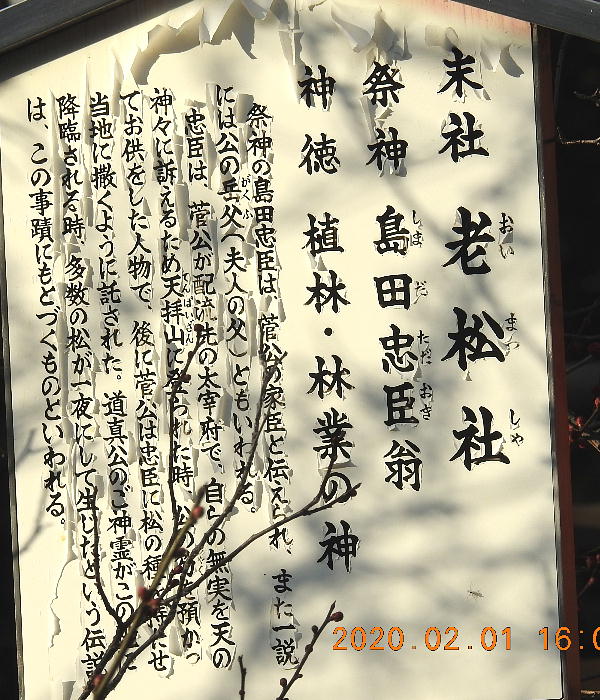 末社 老松社
おい まつ しゃ
祭神 島田忠臣翁
しま だ ただ おき
神徳 植林・林業の神
祭神の島田忠臣は、菅公の家臣と伝えられ、また一説
には公の岳父(夫人の父)ともいわれる。
がくふ
忠臣は、菅公が配流先の太宰府で、自らの無実を天の
神々に訴えるため天拝山に登られた時、公の
てんぱいざん
預かっ
てお供をした人物で、後に菅公は忠臣に松の種を
せ
当地に撒くように託された。道真公のご神霊がこの
降臨される時、多数の松が一夜にして生じたという伝説
は、この事蹟にもとづくものといわれる。
2020.02.01 16:0